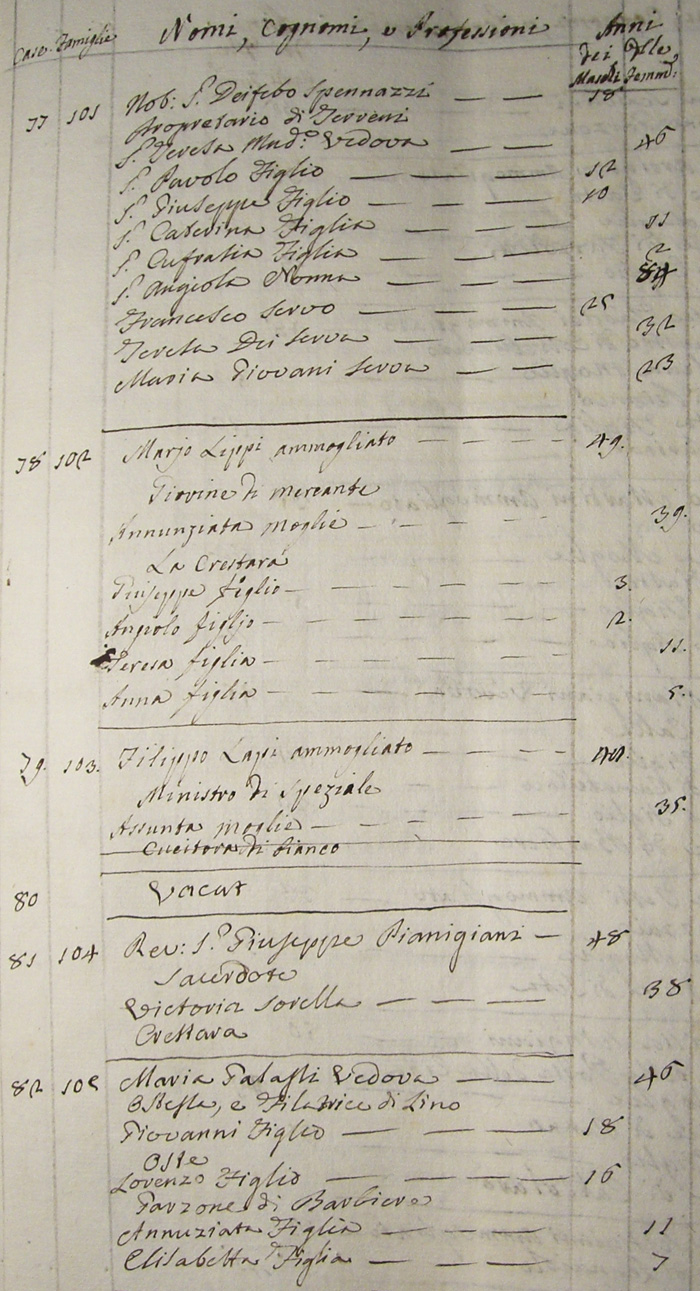 Case. Famiglie Nomi, Cognomi, e Professioni Anni
dei Maschi delle Femm:
77 101 Nob: S.r Deifebo Spennazzi — — 18
Proprietario di Terreni
S.ra Teresa Mad.e Vedova — — 46
S.r Pavolo Figlio — — — — 12
S.r Giuseppe Figlio — — — — 10
S.ra Caterina Figlia — — — — 11
S.ra Eufrasia Figlia — — — — 2
S.ra Angiola Nonna — — — — 84
Francesco Servo — — — — 25
Teresa Dei Serva — — — 32
Maria Giovani Serva — — 23
78 102 Marjo Lippi ammogliato — — — — 49.
Giovine di mercante
Annunziata moglie — — — — — 39.
La Crestara
Giuseppe figlio — — — — — — 3.
Angiolo figljo — — — — — — 2.
Teresa figlia — — — — — — 11.
Anna figlia — — — — — — 5.
79. 103. Filippo Lapi ammogliato — — — — 44.
Ministro di Speziale
Assunta moglie — — — — — 35.
Cucitora di bianco
80 Vacat
81 104 Rev: S.r Giuseppe Pianigiani — 48
Sacerdote
Victoria Sorella — — — — 38
Crestara
82 105 Maria Vedova — — 46
Ostessa, e Filatrice di Lino
Giovanni Figlio — — — — 18
Oste
Lorenzo Figlio — — — — — 16
Garzone di Barbiere
Annuziata Figlia — — — — 11
Elisabetta Figlia — — — — 7